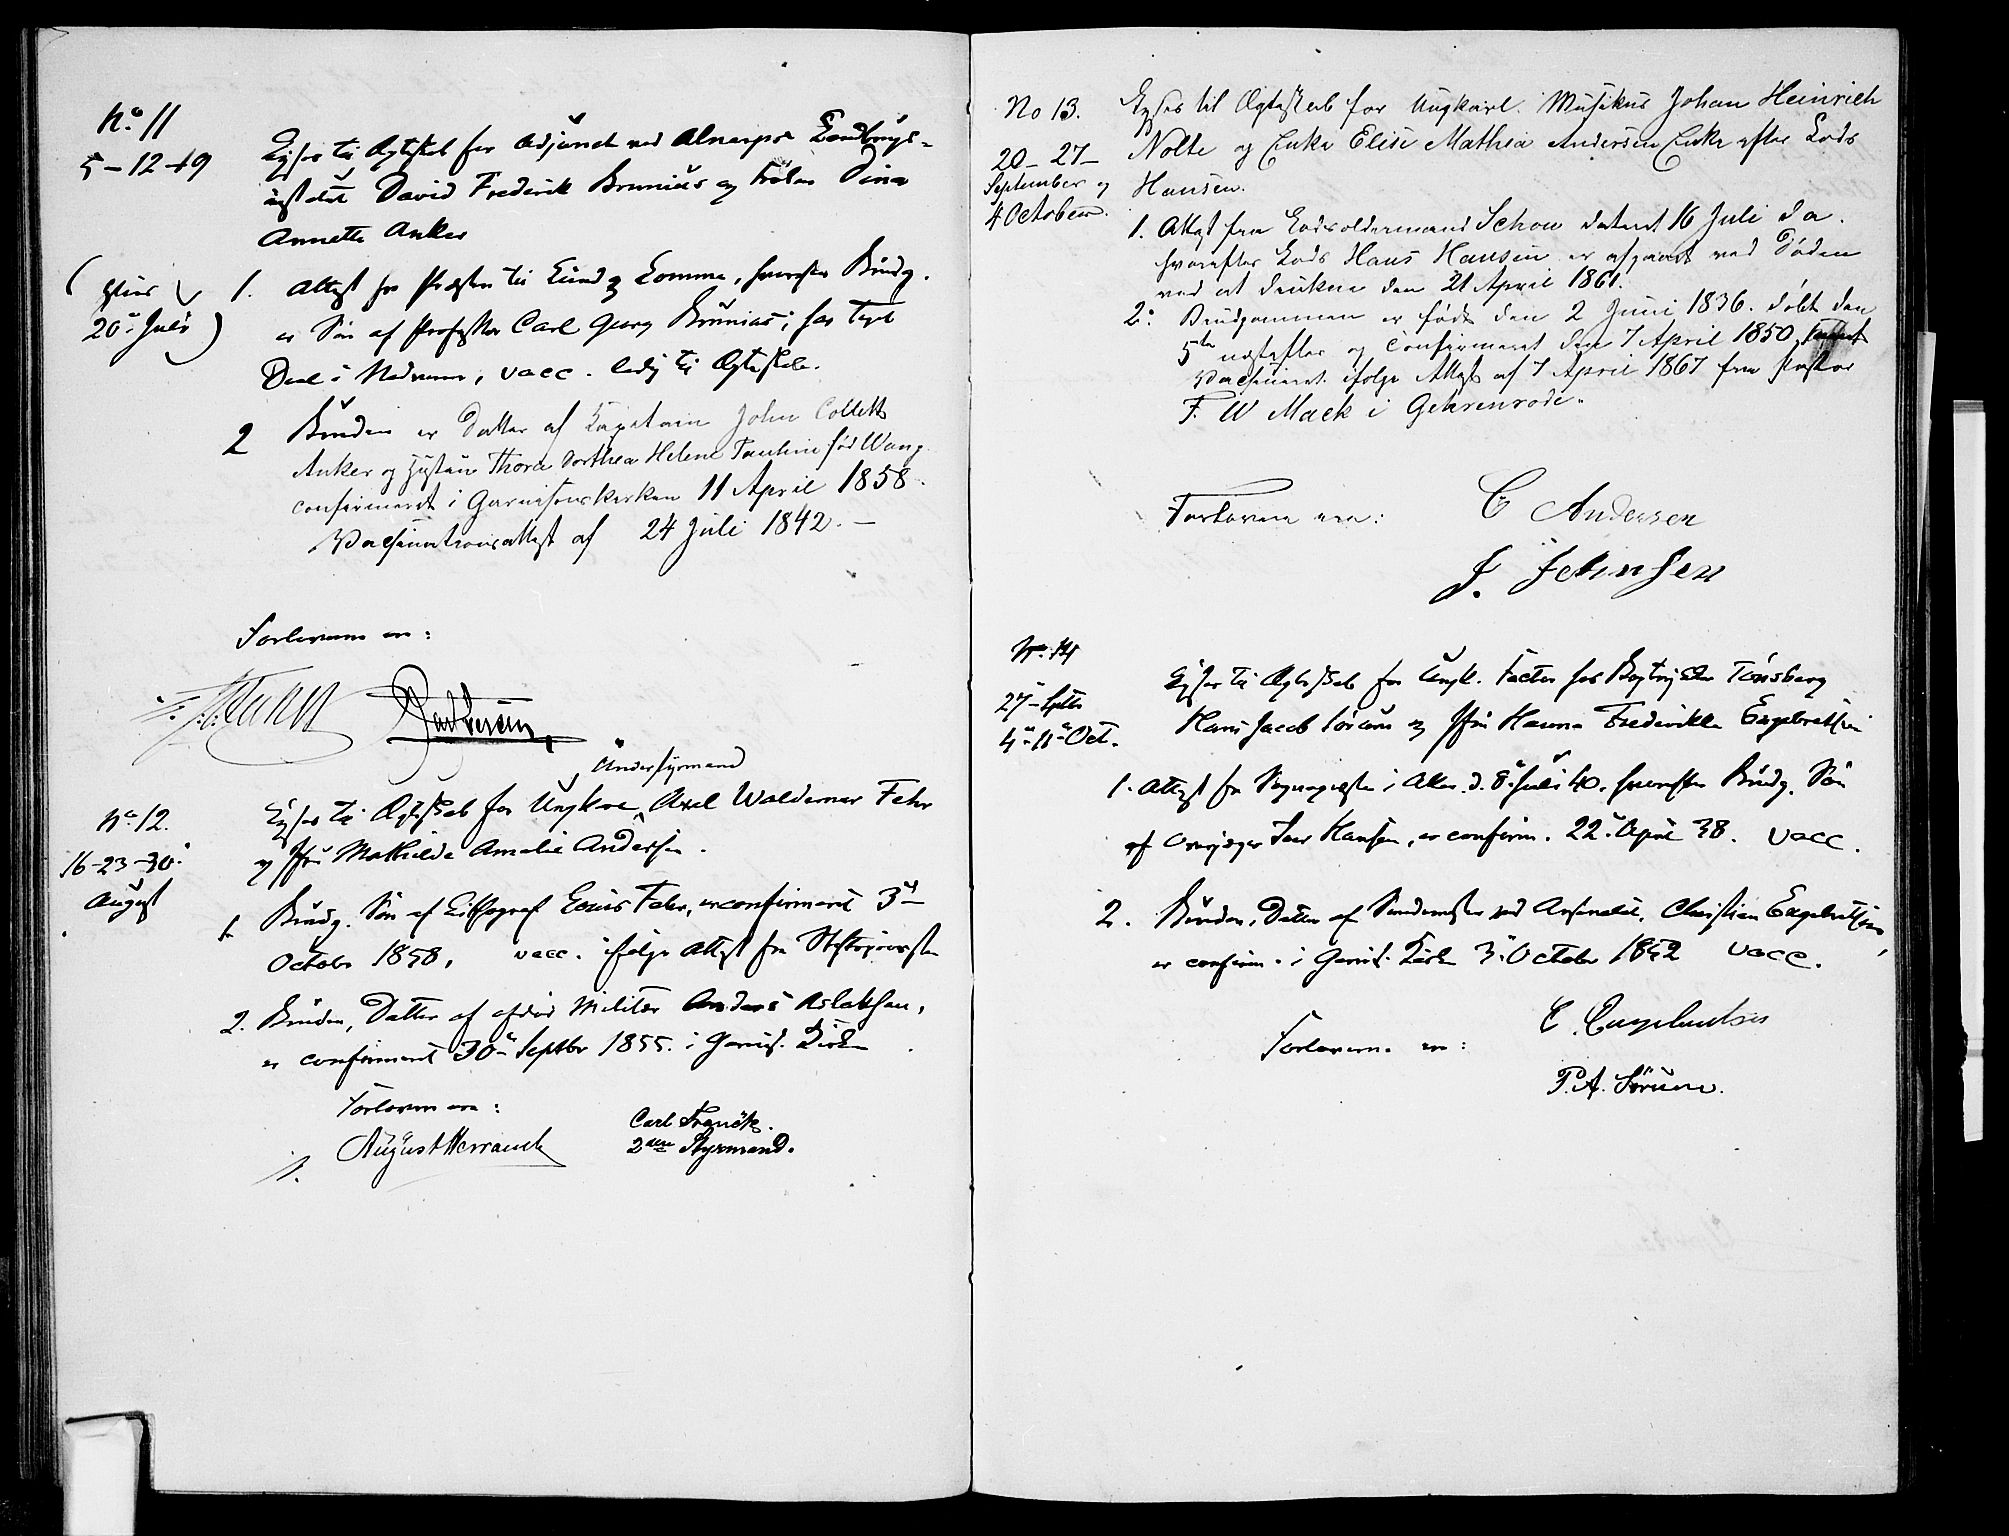 No 11
5-12-19
Lyses til Ægteskab for Adjunct ved Alnarps Landbrugs-
institut David Frederik Brunius og Frøken Dina
Annette Anker
(
20de Juli )
1. Attest fra Præsten til Lund og Lomma, hvorefter Brudg.
er Søn af Professor Carl Georg Brunius; har taget
Deel i Nadveren, vacc. ledig til Ægteskab.
2 Bruden er Datter af Kapetain John Collett
Anker og Hustru Thora Dorthea Helene Pauline fød Wang
confirmeret i Garnisonskirken 11 April 1858.
Vaccinationsattest af 24 Juli 1842. –
Forloverne ere:
Understyrmand
No 12.
16-23-30
August
Lyses til Ægteskab for Ungkarl Axel Waldemar Fehr
og Jfr. Mathilde Amalie Andersen.
1. Brudg. Søn af Lithograf Louis Fehr, er confirmeret 3die
October 1858, vacc. ifølge Attest fra Stiftsprovsten
2. Bruden, Datter af afdøde Militær Anders Aslaksen,
er confirmeret 30te Septbr 1855. i Garnis. Kirke
Forloverne ere:
August Werrauch
Carl Franck.
2den Styrmand.
No 13.
20-27-
September og
4 October.
Lyses til Ægteskab for Ungkarl Musikus Johan Heinrich
Nolte og Enke Elise Mathea Andersen Enke efter Lods
Hansen.
1. Attest fra Lodsoldermand Schou dateret 16 Juli d a.
hvorefter Lods Hans Hansen er afgaaet ved Døden
ved at drukne den 21 April 1861.
2. Brudgommen er født den 2 Juni 1836. døbt den
5te næstefter og confirmeret den 7 April 1850,
Vacsineret ifølge Attest af 7 April 1867 fra Pastor
F. W Mack i Gehrenrode.
Forloverne ere:
C Andersen
J. Johnsen
No 14
27de Septr
4de 11de Oct.
Lyses til Ægteskab for Ungk. Factor hos Bogtrykker Tønsberg
Hans Jacob Sørum og Jfr. Hanna Fredrikke Engebretsen
1. Attest fra Sognepræsten i Aker d. 8de Juli 40. hvorefter Brudg. Søn
af Iver Hansen, er confirm. 22de April 38. vacc.
2. Bruden, Datter af ved Arsenalet, Christian Engebretsen,
er confirm. i Garnis. Kirke 3de October 1852 vacc.
Forloverne ere:
C. Engebretsen
P.A. Sørum.